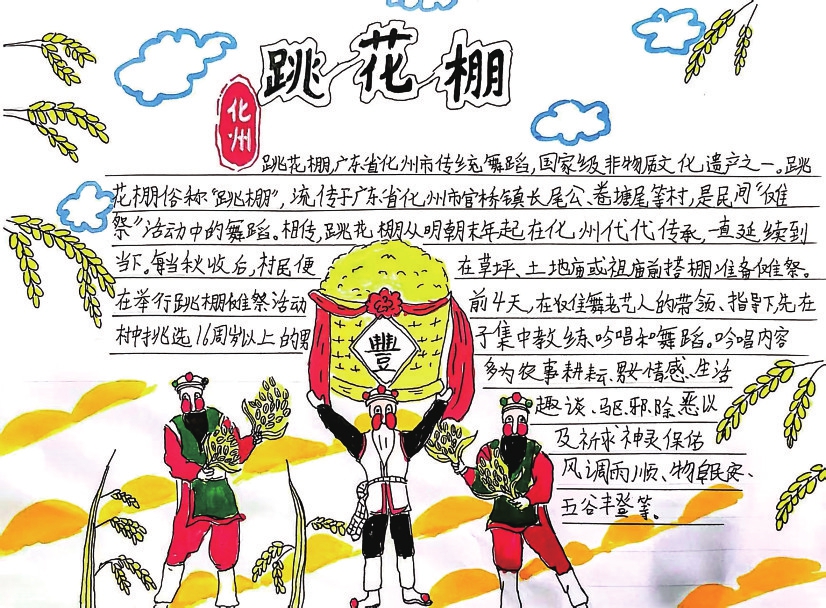 跳花棚
化州
跳花棚,广东省化州市传统舞蹈,国家级非物质文化遗产之一。跳
花棚俗称"跳棚",流传于广东省化州市官桥镇长尾公、卷塘尾等村,是民间"傩
祭"活动中的舞蹈。相传,跳花棚从明朝末年起在化州代代传承,一直延续到
当下。每当秋收后,村民便在草坪、土地庙或祖庙前搭棚准备傩祭。
在举行跳棚傩祭活动前4天,在傩舞老艺人的带领、指导下,先在
村中挑选16周岁以上的男子集中教练吟唱和舞蹈。吟唱内容
豐
多为农事耕耘、男女情感、生活
趣谈、驱邪除恶以
及祈求神灵保佑
风调雨顺、物阜民安、
五谷丰登等。